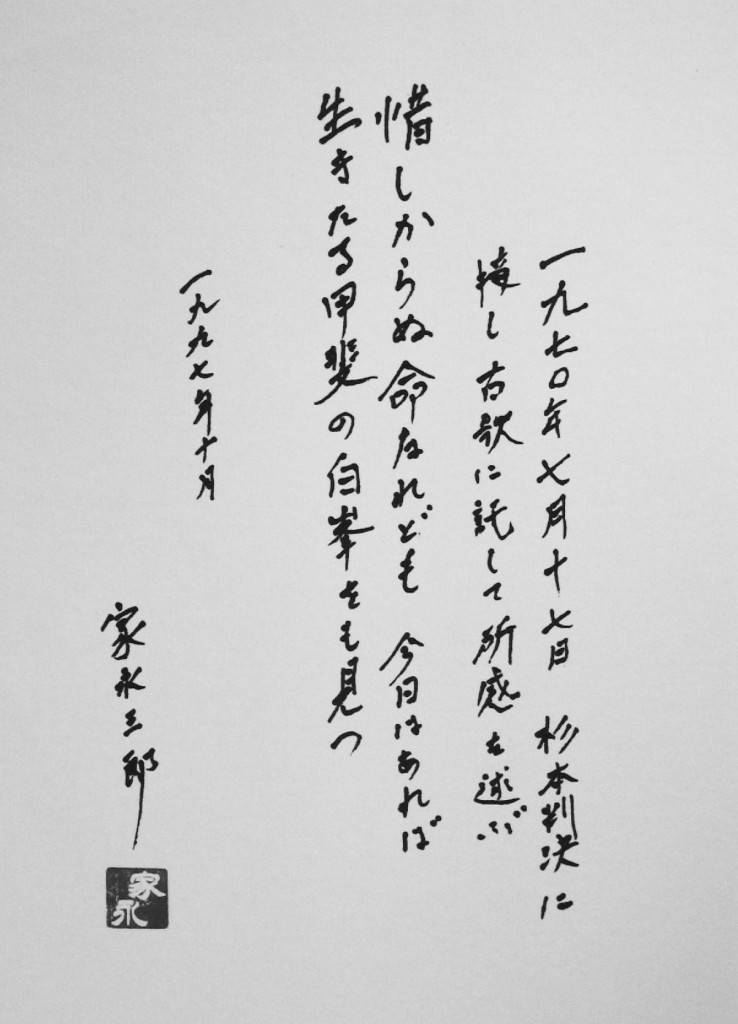 一九七〇年七月十七日 杉本判決に
接し古歌に託して所感を述ぶ
惜しからぬ命なれども 今日はあれば
生きたる甲斐の白峯をも見つ
一九九七年十月
家永三郎
家永